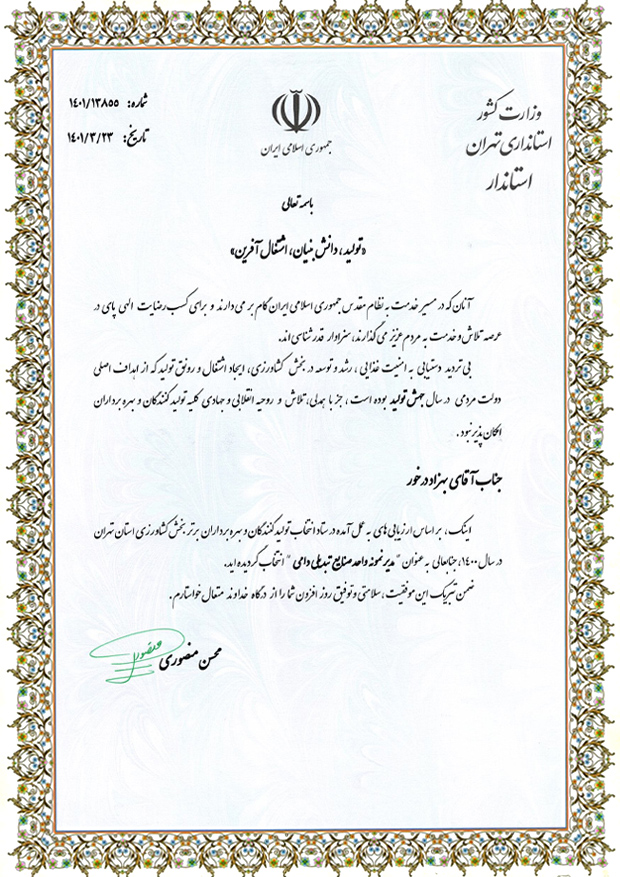 وزارت کشور
استانداری تهران
استاندار
جمهوری اسلامی ایران
شماره: ۱۴۰۱/۱۳۸۵۵
تاریخ: ۱۴۰۱/۳/۲۳
باسمه تعالی
«تولید، دانش بنیان، اشتغال آفرین»
آنان که در مسیر خدمت به نظام مقدس جمهوری اسلامی ایران گام بر می دارند و برای کسب رضایت الهی پای در
عرصه تلاش و خدمت به مردم عزیز می گذارند، سزاوار قدرشناسی اند.
بی تردید دستیابی به امنیت غذایی، رشد و توسعه در بخش کشاورزی، ایجاد اشتغال و رونق تولید که از اهداف اصلی
دولت مردمی در سال جهش تولید بوده است، جز با همدلی، تلاش و روحیه انقلابی و جهادی کلیه تولید کنندگان و بهره برداران
امکان پذیر نبود.
جناب آقای بهزاد درخور
اینک، بر اساس ارزیابی های به عمل آمده در ستاد انتخاب تولید کنندگان و بهره برداران برتر بخش کشاورزی استان تهران
در سال ۱۴۰۰، جنابعالی به عنوان "مدیر نمونه واحد صنایع تبدیلی دامی" انتخاب گردیده اید.
ضمن تبریک این موفقیت، سلامتی و توفیق روز افزون شما را از درگاه خداوند متعال خواستارم.
محسن منصوری
منصوری